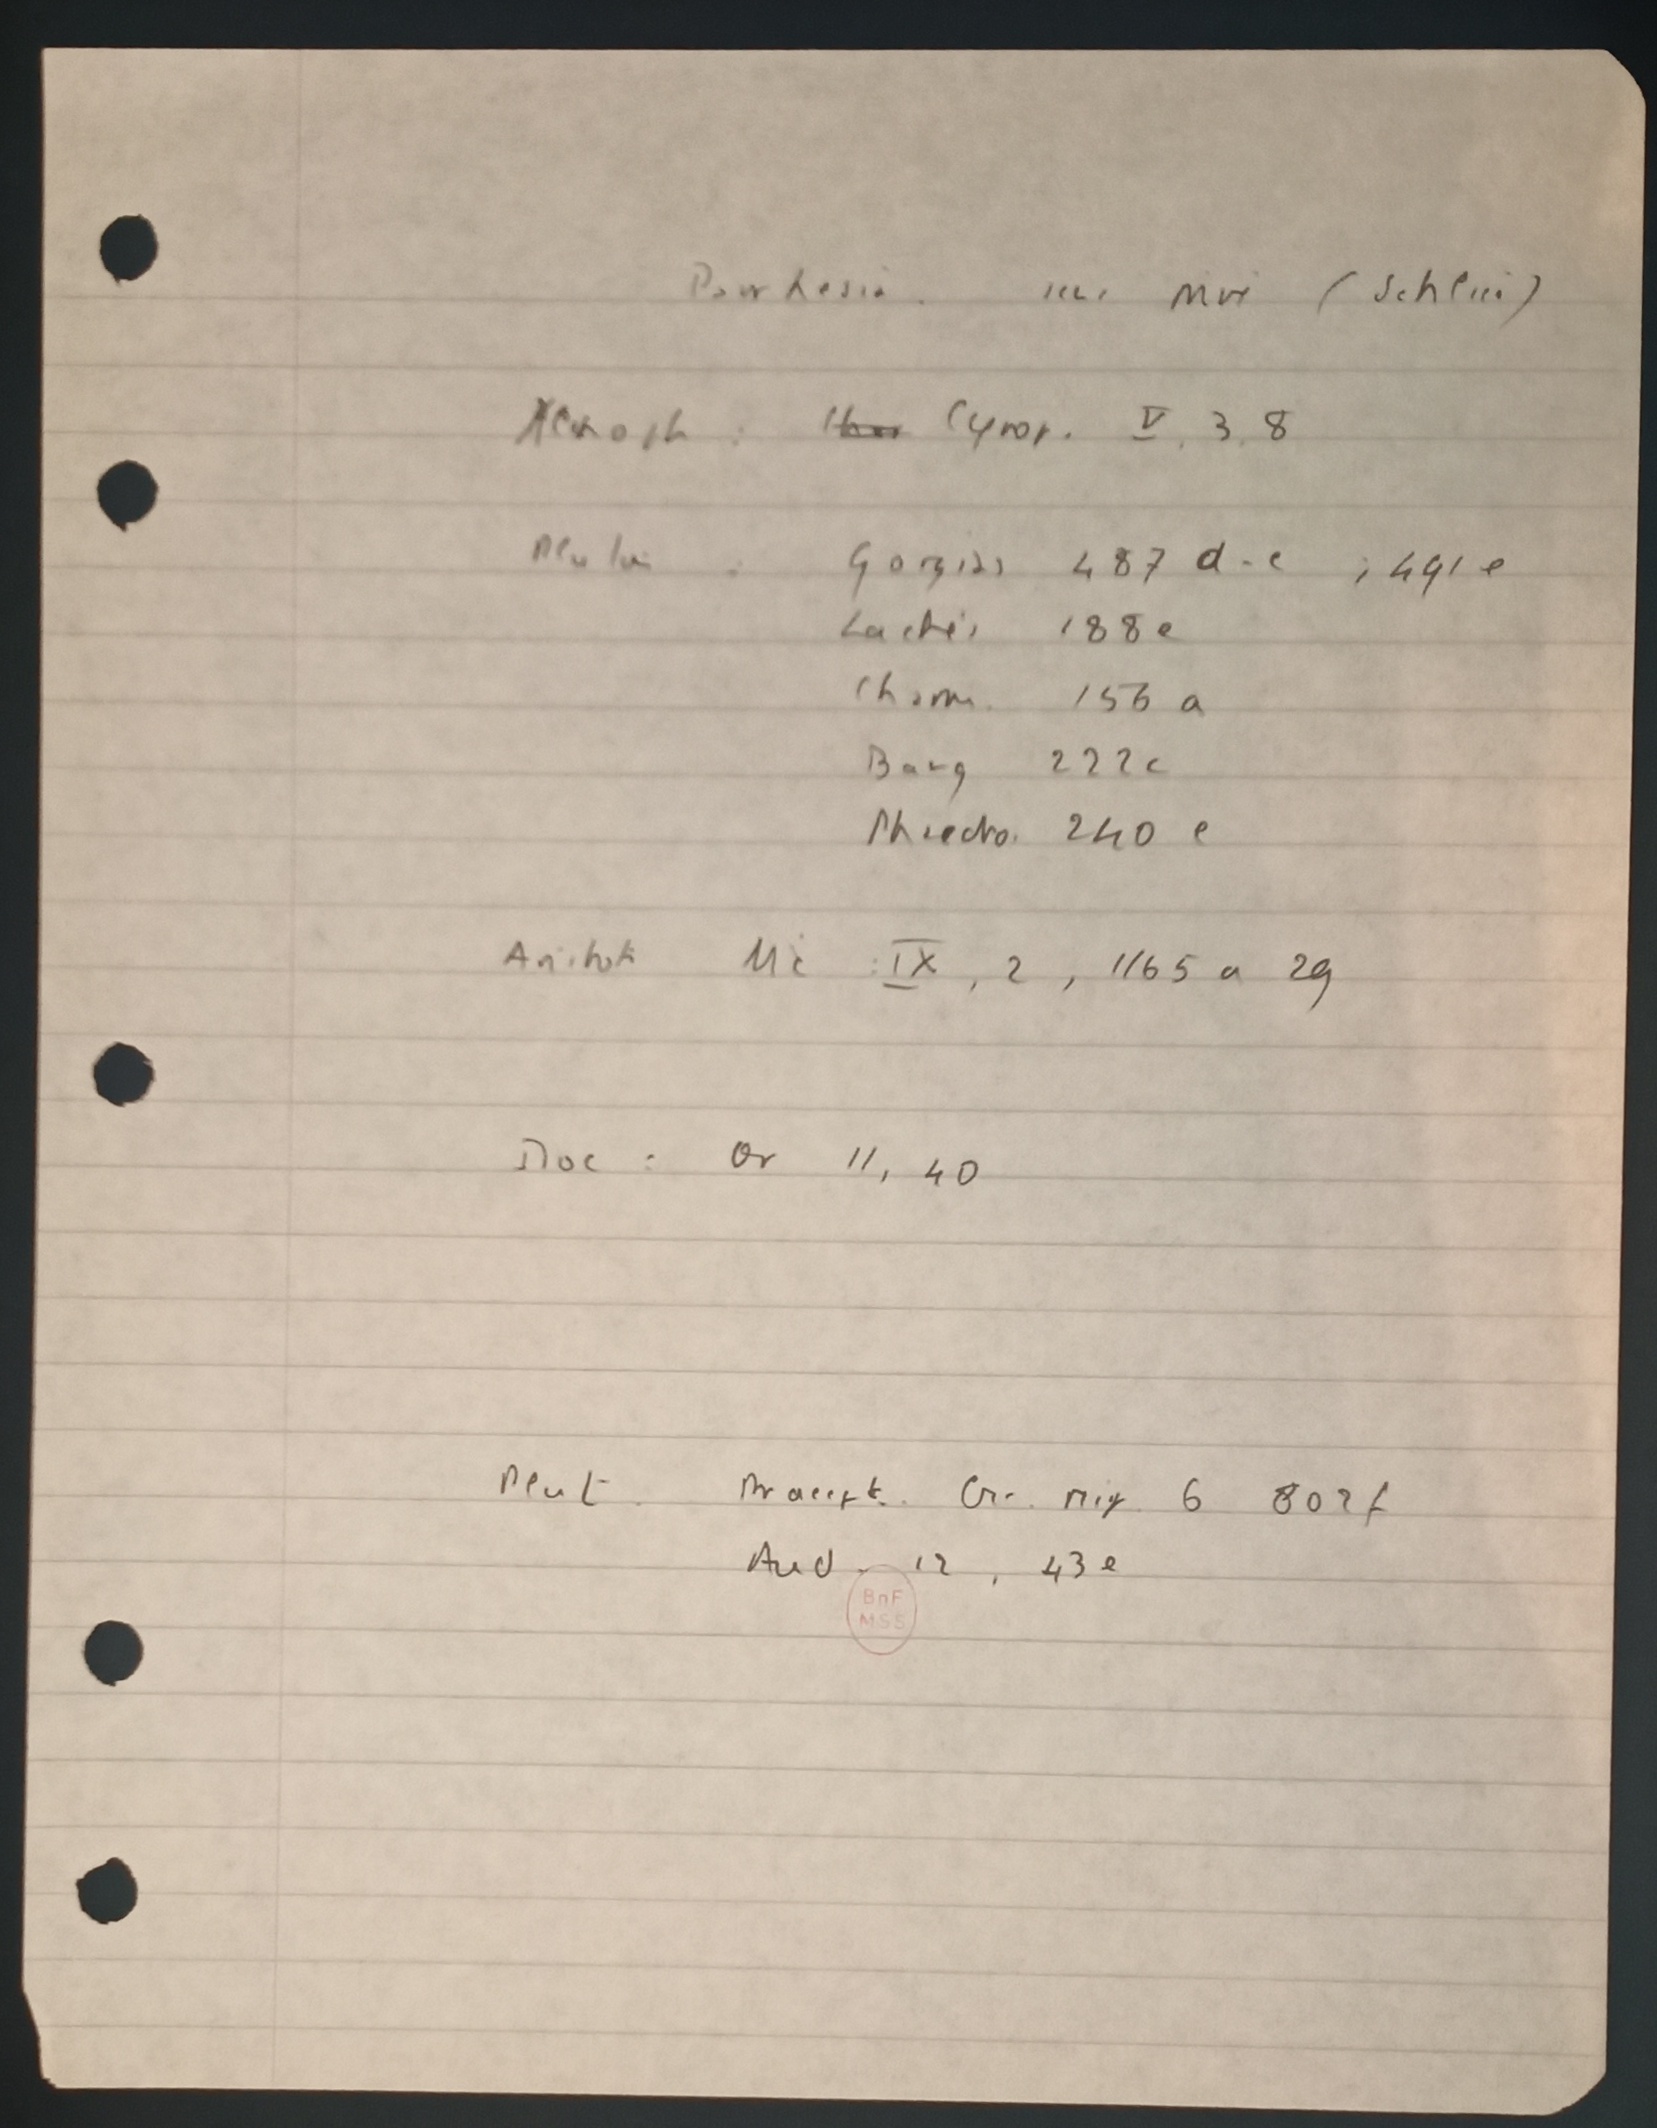 Parrhesia. sens privé (Schlier)
Xenoph : Cyrop. V, 3, 8
Platon : Gorgias 487 d-e ; 491 e
Lachès 188 e
Charm. 156 a
Banq 222 c
Phaedro. 240 e
Aristot Nic : IX, 2, 1165 a 29
Isoc : Or 11, 40
Plut. Praecept. Ger. reip. 6 802 f
Aud. 12, 43 e
BnF
MSS